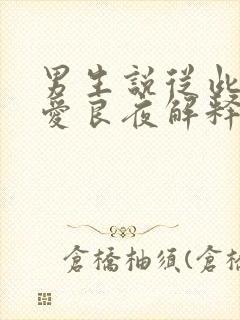 男生說從此
愛良夜解釋
倉橋柚須(倉橋